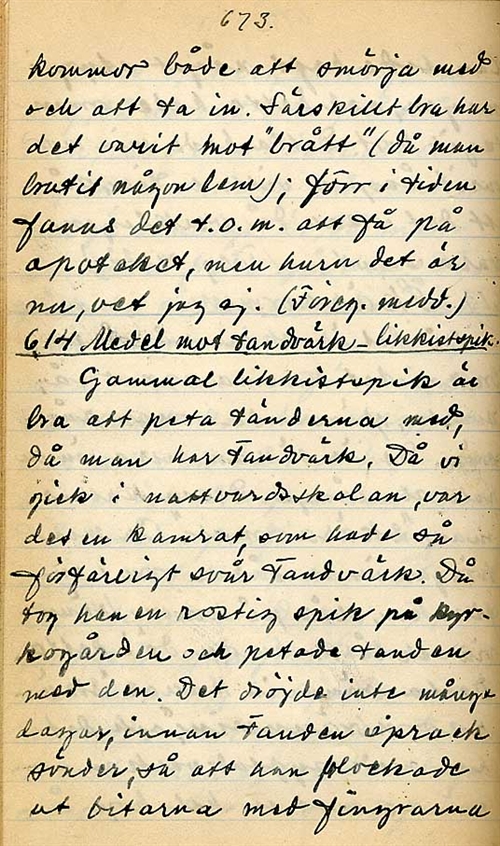 673.
kommor både att smörja med
och att ta in. Särskilt bra har
det varit mot "brått" (då man
brutit någon lem); förr i tiden
fanns det t.o.m. att få på
apoteket, men huru det är
nu, vet jag ej. (Föreg. medd.)
614 Medel mot tandvärk - likkistspik.
Gammal likkistspik är
bra att peta tänderna med,
då man har tandvärk. Då vi
gick i nattvardsskolan, var
det en kamrat, som hade så
förfärligt svår tandvärk. Då
tog han en rostig spik på kyr-
kogården och petade tanden
med den. Det dröjde inte många
dagar, innan tanden sprack
sönder, så att han plockade
ut bitarna med fingrarna